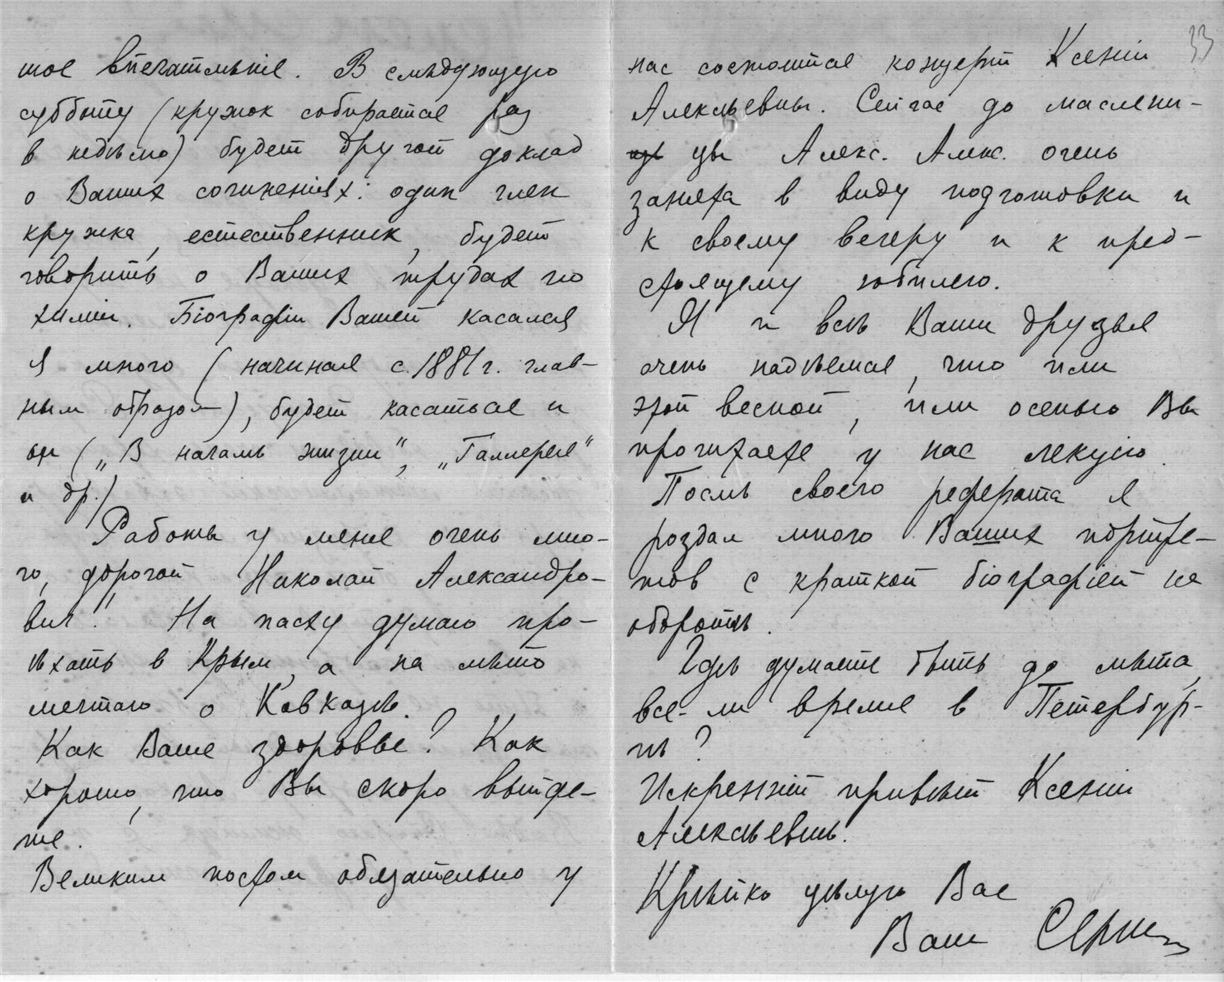 тое впечатлѣніе. В слѣдующую
субботу (кружок собирается раз
в недѣлю) будет другой доклад
о Ваших сочиненіях: один член
кружка, естественник, будет
говорить о Ваших трудах по
химіи. Біографіи Вашей касался
я много (начиная с 1881 г. глав-
ным образом), будет касаться и
он („В началѣ жизни“, „Галлерея“
и др.)
Работы у меня очень мно-
го, дорогой Николай Александро-
вич! На пасху думаю про-
ѣхать в Крым, а на лѣто
мечтаю о Кавказѣ.
Как Ваше здоровье? Как
хорошо, что Вы скоро выйде-
те.
Великим постом обязательно у
33
нас состоится концерт Ксеніи
Алексѣевны. Сейчас до маслени-
цы Алекс. Алек. очень
занята в виду подготовки и
к своему вечеру и к пред-
стоящему юбилею.
Я и всѣ Ваши друзья
очень надѣемся, что или
этой весной, или осенью Вы
прочитаете у нас лекцію.
Послѣ своего реферата я
роздал много Ваших портре-
тов с краткой біографіей на
оборотѣ.
Гдѣ думаете быть до лѣта,
все-ли время в Петербур-
гѣ?
Искренній привѣт Ксеніи
Алексѣевнѣ.
Крѣпко цѣлую Вас
Ваш